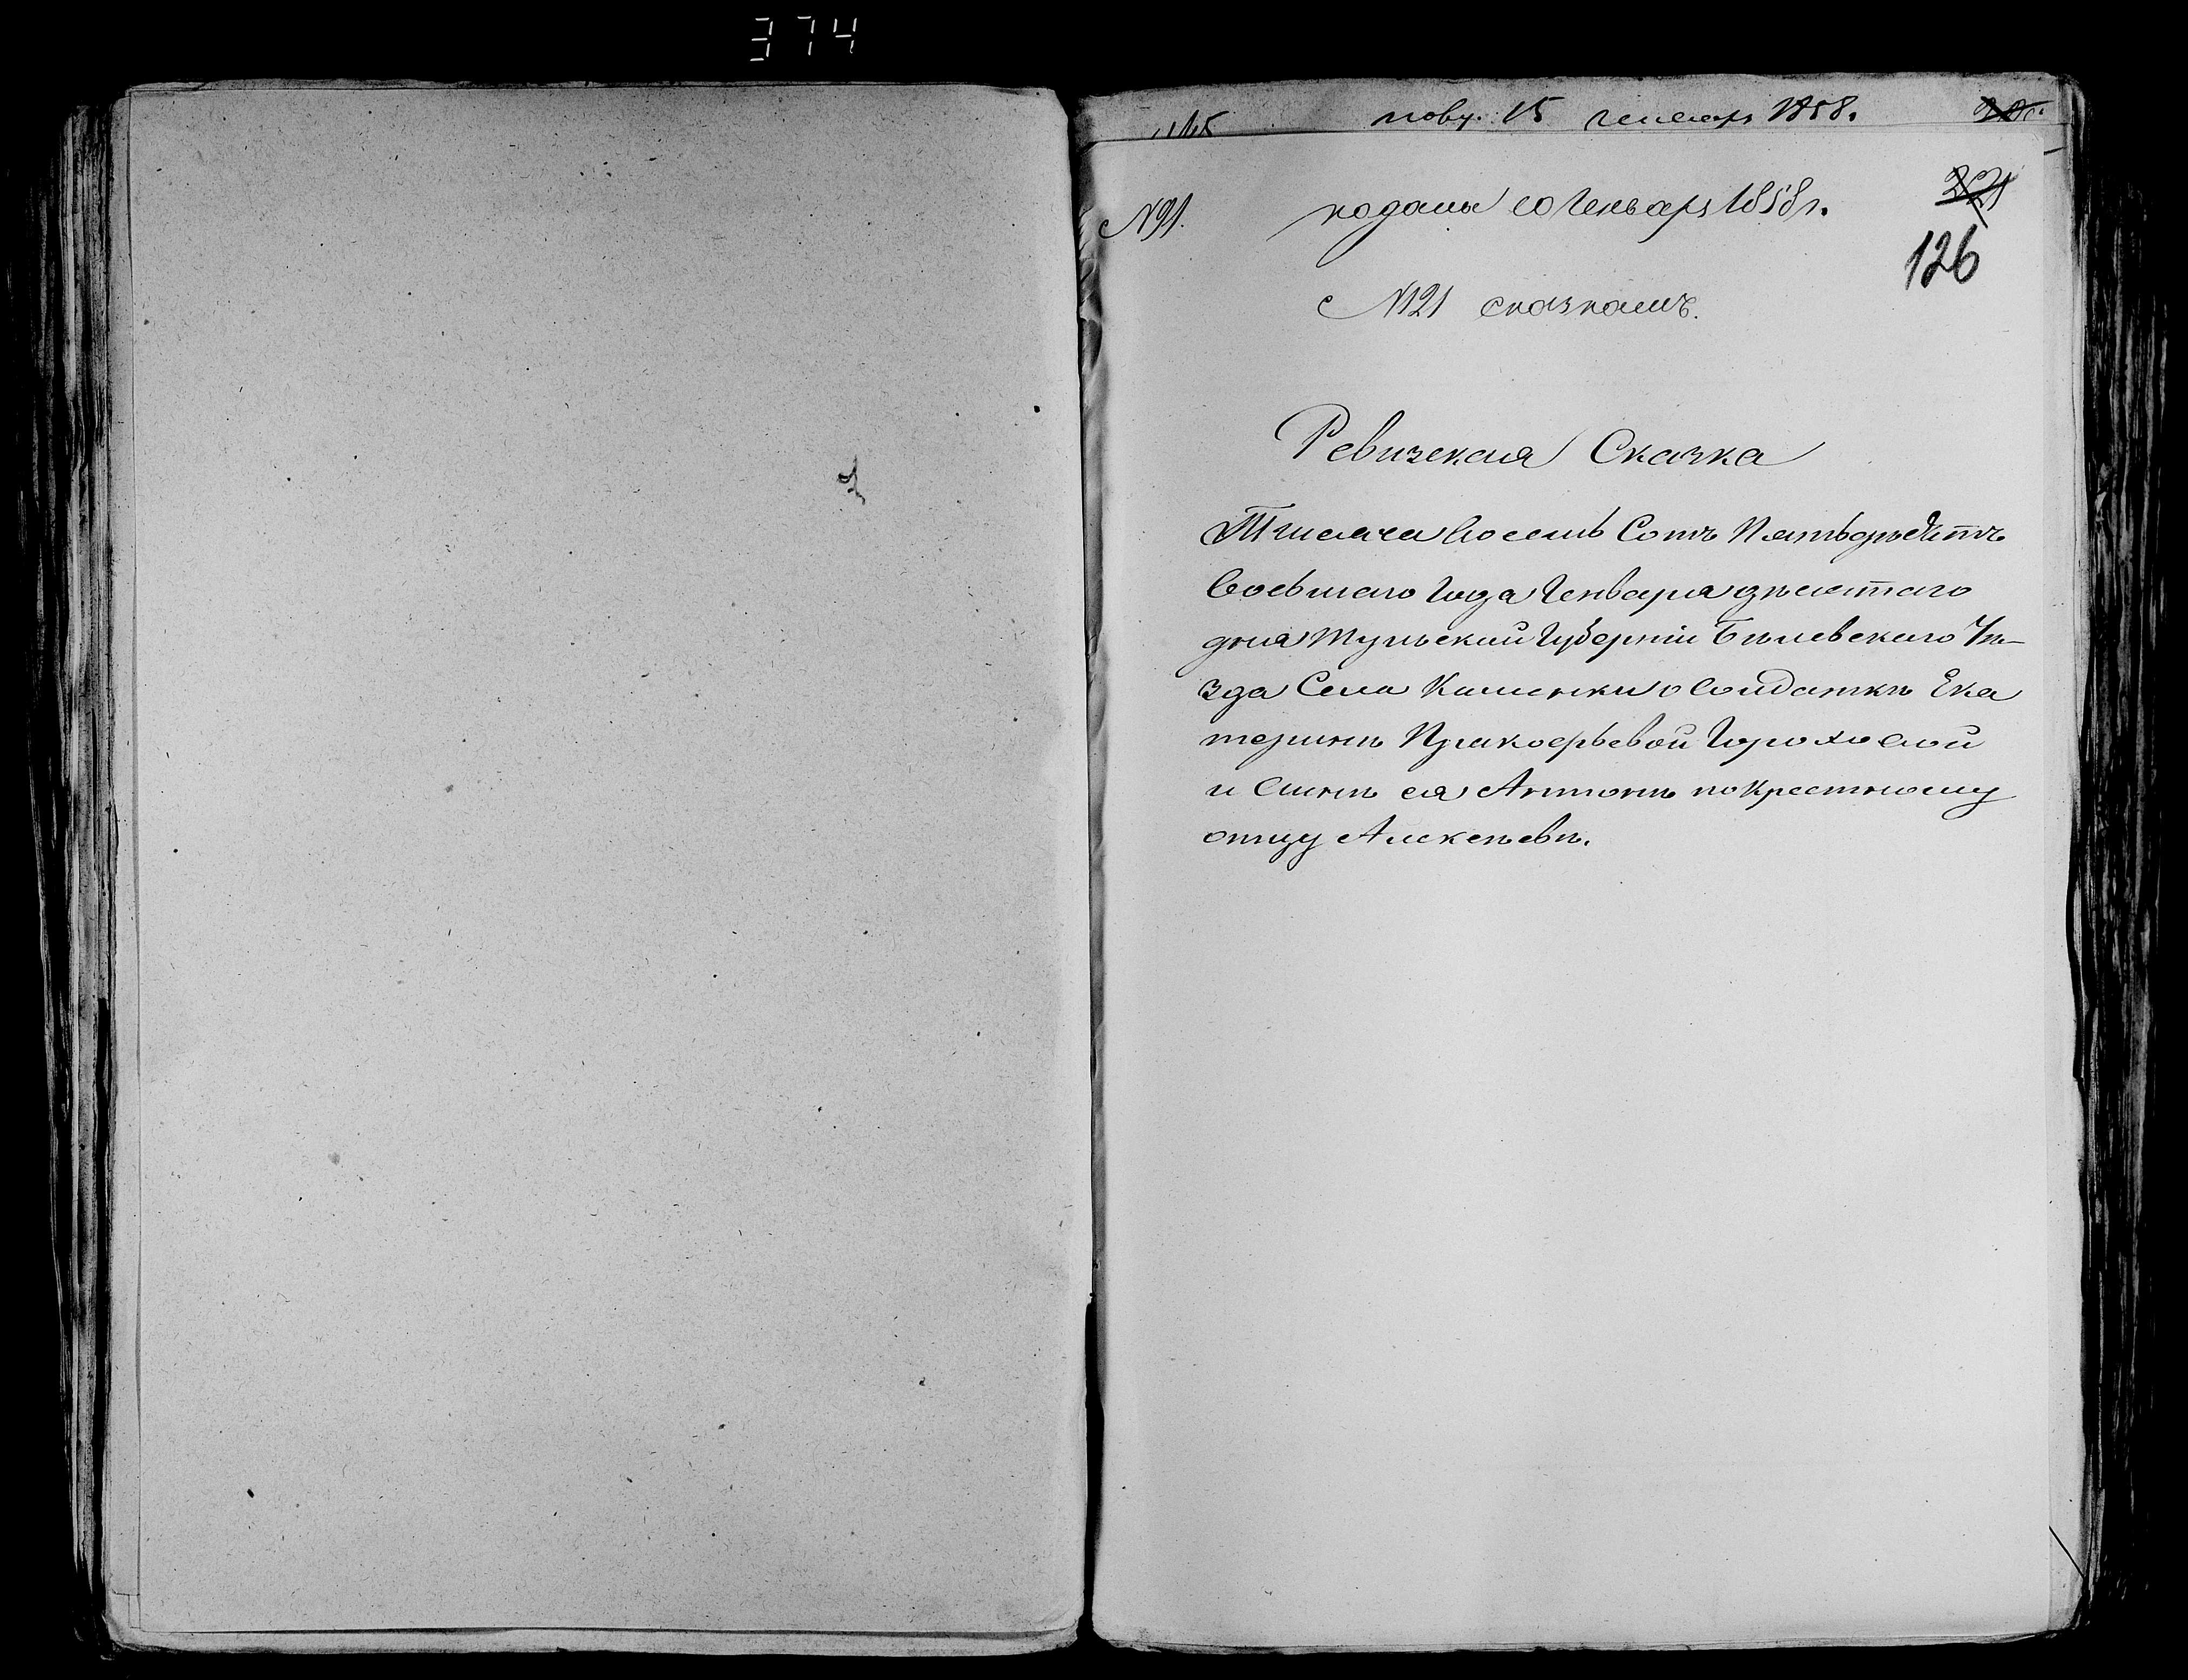 374
15 генвар 1858.
№91. подана 10 Генваря 1858 г.
221
126
№121 сказкамъ.
Ревизская Сказка
Тысяча Восемь Сотъ Пятьдесятъ
Восьмаго Года Генваря десятаго
дня Тульской Губерніи Бѣлевскаго Уѣ-
зда Села Каменки о Солдаткѣ Ека
теринѣ Прокофьевой Гороховой
и Сынѣ ея Антонѣ по крестному
отцу Алексѣевѣ.